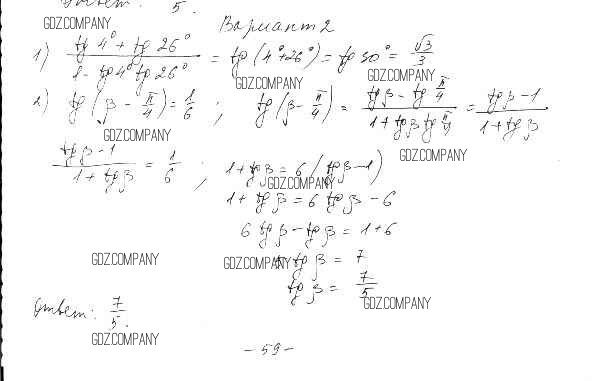 Ответ: 5.
GDZ.COMPANY
Вариант 2
1) (tg 4° + tg 26°) / (1 - tg 4° tg 26°) = tg (4° + 26°) = tg 30° = √3/3
GDZ.COMPANY GDZ.COMPANY
2) tg (β - π/4) = 1/6 ; tg (β - π/4) = (tg β - tg π/4) / (1 + tg β tg π/4) = (tg β - 1) / (1 + tg β)
GDZ.COMPANY GDZ.COMPANY
(tg β - 1) / (1 + tg β) = 1/6 ; 1 + tg β = 6 (tg β - 1)
GDZ.COMPANY
1 + tg β = 6 tg β - 6
6 tg β - tg β = 1 + 6
GDZ.COMPANY GDZ.COMPANY tg β = 7
tg β = 7/5
GDZ.COMPANY
Ответ: 7/5.
GDZ.COMPANY
- 59 -